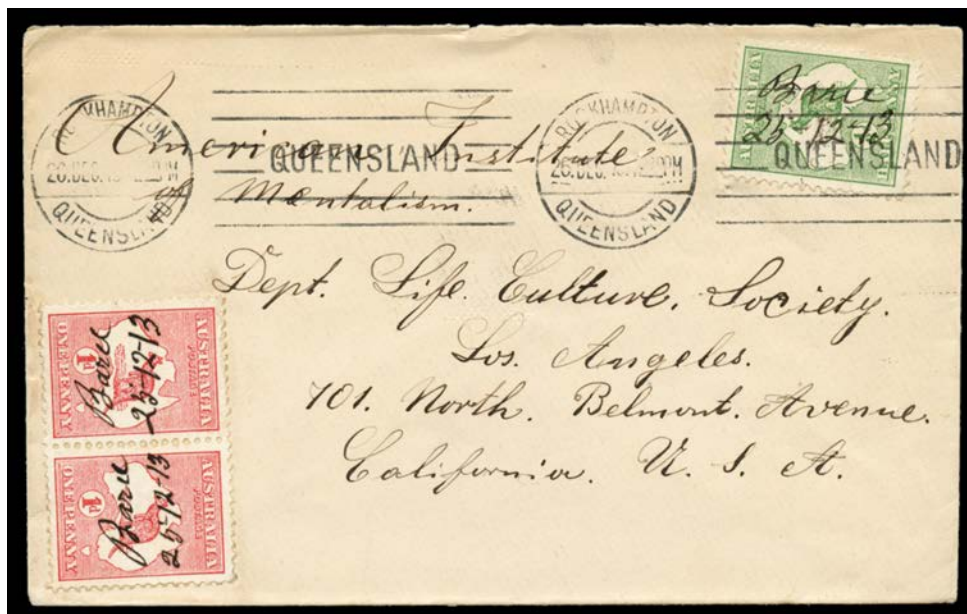 ROCKHAMPTON
26.DEC.13
QUEENSLAND
QUEENSLAND
ROCKHAMPTON
26.DEC.
QUEENSLAND
QUEENSLAND
AUSTRALIA
Baree
25-12-13
American Institute
of
Mentalism.
Dept. Life. Culture. Society.
Los. Angeles.
701. North. Belmont. Avenue.
California. U. S. A.
AUSTRALIA
POSTAGE
1d
ONE PENNY
Baree
25-12-13
AUSTRALIA
POSTAGE
1d
ONE PENNY
Baree
25-12-13